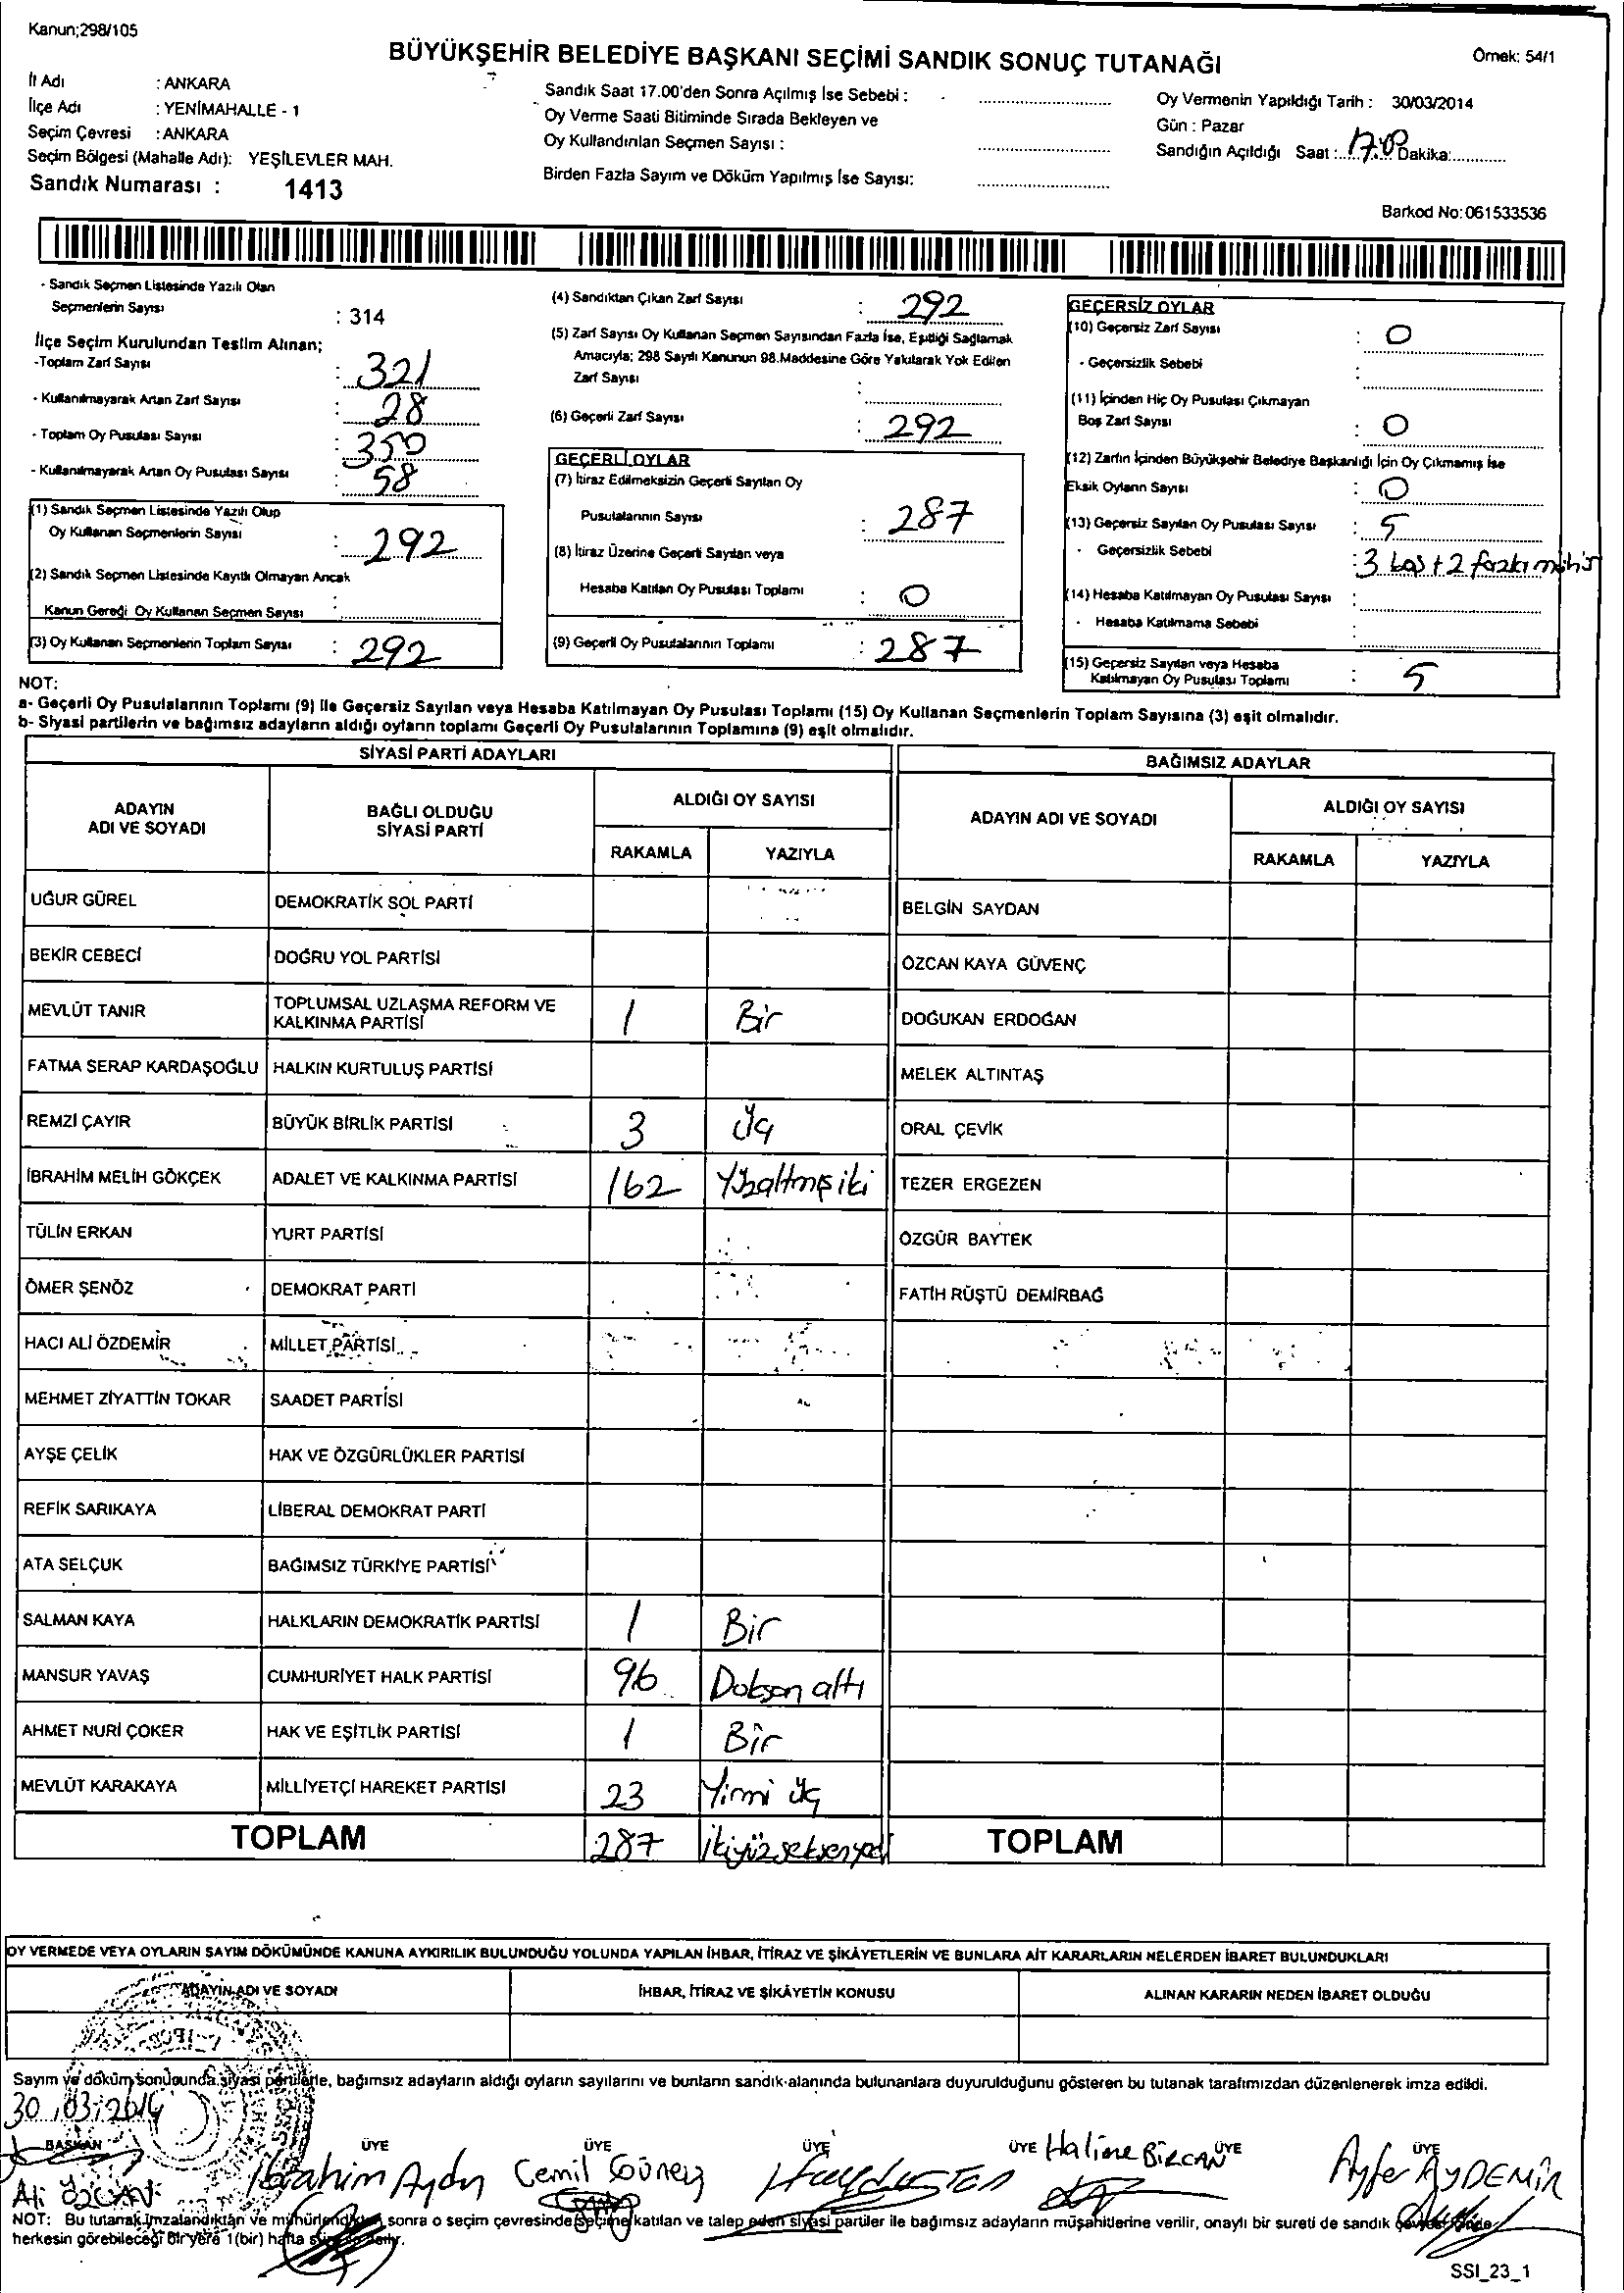 Kanun;298/105
BÜYÜKŞEHİR BELEDİYE BAŞKANI SEÇİMİ SANDIK SONUÇ TUTANAĞI
Örnek: 54/1
İl Adı : ANKARA
İlçe Adı : YENİMAHALLE - 1
Seçim Çevresi : ANKARA
Seçim Bölgesi (Mahalle Adı): YEŞİLEVLER MAH.
Sandık Numarası : 1413
Sandık Saat 17.00'den Sonra Açılmış İse Sebebi :
Oy Verme Saati Bitiminde Sırada Bekleyen ve
Oy Kullandırılan Seçmen Sayısı :
Birden Fazla Sayım ve Döküm Yapılmış İse Sayısı:
Oy Vermenin Yapıldığı Tarih : 30/03/2014
Gün : Pazar
Sandığın Açıldığı Saat : 17:00 Dakika:
Barkod No:061533536
- Sandık Seçmen Listesinde Yazılı Olan
Seçmenlerin Sayısı : 314
İlçe Seçim Kurulundan Teslim Alınan;
-Toplam Zarf Sayısı : 321
- Kullanılmayarak Artan Zarf Sayısı : 28
- Toplam Oy Pusulası Sayısı : 350
- Kullanılmayarak Artan Oy Pusulası Sayısı : 58
(1) Sandık Seçmen Listesinde Yazılı Olup
Oy Kullanan Seçmenlerin Sayısı : 292
(2) Sandık Seçmen Listesinde Kayıtlı Olmayan Ancak
Kanun Gereği Oy Kullanan Seçmen Sayısı :
(3) Oy Kullanan Seçmenlerin Toplam Sayısı : 292
(4) Sandıktan Çıkan Zarf Sayısı : 292
(5) Zarf Sayısı Oy Kullanan Seçmen Sayısından Fazla İse, Eşitliği Sağlamak
Amacıyla; 298 Sayılı Kanunun 98.Maddesine Göre Yakılarak Yok Edilen
Zarf Sayısı :
(6) Geçerli Zarf Sayısı : 292
GEÇERLİ OYLAR
(7) İtiraz Edilmeksizin Geçerli Sayılan Oy
Pusulalarının Sayısı : 287
(8) İtiraz Üzerine Geçerli Sayılan veya
Hesaba Katılan Oy Pusulası Toplamı : 0
(9) Geçerli Oy Pusulalarının Toplamı : 287
GEÇERSİZ OYLAR
(10) Geçersiz Zarf Sayısı : 0
- Geçersizlik Sebebi :
(11) İçinden Hiç Oy Pusulası Çıkmayan
Boş Zarf Sayısı : 0
(12) Zarfın İçinden Büyükşehir Belediye Başkanlığı İçin Oy Çıkmamış İse
Eksik Oyların Sayısı : 0
(13) Geçersiz Sayılan Oy Pusulası Sayısı : 5
- Geçersizlik Sebebi : 3 boş + 2 fazla mühür
(14) Hesaba Katılmayan Oy Pusulası Sayısı :
- Hesaba Katılmama Sebebi :
(15) Geçersiz Sayılan veya Hesaba
Katılmayan Oy Pusulası Toplamı : 5
NOT:
a- Geçerli Oy Pusulalarının Toplamı (9) ile Geçersiz Sayılan veya Hesaba Katılmayan Oy Pusulası Toplamı (15) Oy Kullanan Seçmenlerin Toplam Sayısına (3) eşit olmalıdır.
b- Siyasi partilerin ve bağımsız adayların aldığı oyların toplamı Geçerli Oy Pusulalarının Toplamına (9) eşit olmalıdır.
SİYASİ PARTİ ADAYLARI
BAĞIMSIZ ADAYLAR
ADAYIN
ADI VE SOYADI
BAĞLI OLDUĞU
SİYASİ PARTİ
ALDIĞI OY SAYISI
RAKAMLA YAZIYLA
ADAYIN ADI VE SOYADI
ALDIĞI OY SAYISI
RAKAMLA YAZIYLA
UĞUR GÜREL DEMOKRATİK SOL PARTİ BELGİN SAYDAN
BEKİR CEBECİ DOĞRU YOL PARTİSİ ÖZCAN KAYA GÜVENÇ
MEVLÜT TANIR TOPLUMSAL UZLAŞMA REFORM VE
KALKINMA PARTİSİ 1 Bir DOĞUKAN ERDOĞAN
FATMA SERAP KARDAŞOĞLU HALKIN KURTULUŞ PARTİSİ MELEK ALTINTAŞ
REMZİ ÇAYIR BÜYÜK BİRLİK PARTİSİ 3 Üç ORAL ÇEVİK
İBRAHİM MELİH GÖKÇEK ADALET VE KALKINMA PARTİSİ 162 Yüzaltmışiki TEZER ERGEZEN
TÜLİN ERKAN YURT PARTİSİ ÖZGÜR BAYTEK
ÖMER ŞENÖZ DEMOKRAT PARTİ FATİH RÜŞTÜ DEMİRBAĞ
HACI ALİ ÖZDEMİR MİLLET PARTİSİ
MEHMET ZİYATTİN TOKAR SAADET PARTİSİ
AYŞE ÇELİK HAK VE ÖZGÜRLÜKLER PARTİSİ
REFİK SARIKAYA LİBERAL DEMOKRAT PARTİ
ATA SELÇUK BAĞIMSIZ TÜRKİYE PARTİSİ
SALMAN KAYA HALKLARIN DEMOKRATİK PARTİSİ 1 Bir
MANSUR YAVAŞ CUMHURİYET HALK PARTİSİ 96 Doksan altı
AHMET NURİ ÇOKER HAK VE EŞİTLİK PARTİSİ 1 Bir
MEVLÜT KARAKAYA MİLLİYETÇİ HAREKET PARTİSİ 23 Yirmi üç
TOPLAM 287 İkiyüzseksenyedi TOPLAM
OY VERMEDE VEYA OYLARIN SAYIM DÖKÜMÜNDE KANUNA AYKIRILIK BULUNDUĞU YOLUNDA YAPILAN İHBAR, İTİRAZ VE ŞİKÂYETLERİN VE BUNLARA AİT KARARLARIN NELERDEN İBARET BULUNDUKLARI
ADAYIN ADI VE SOYADI İHBAR, İTİRAZ VE ŞİKÂYETİN KONUSU ALINAN KARARIN NEDEN İBARET OLDUĞU
Sayım ve döküm sonucunda siyasi partilerle, bağımsız adayların aldığı oyların sayılarını ve bunların sandık alanında bulunanlara duyurulduğunu gösteren bu tutanak tarafımızdan düzenlenerek imza edildi.
30.03.2014
BAŞKAN ÜYE ÜYE ÜYE ÜYE ÜYE ÜYE
Ali ÖZCAN İbrahim Aydın Cemil Güneş Halime BİRCAN Ayfer AYDEMİR
NOT: Bu tutanak imzalandıktan ve mühürlendikten sonra o seçim çevresinde seçime katılan ve talep eden siyasi partiler ile bağımsız adayların müşahitlerine verilir, onaylı bir sureti de sandık çevresinde
herkesin görebileceği bir yere 1(bir) hafta süre ile asılır.
SSI_23_1